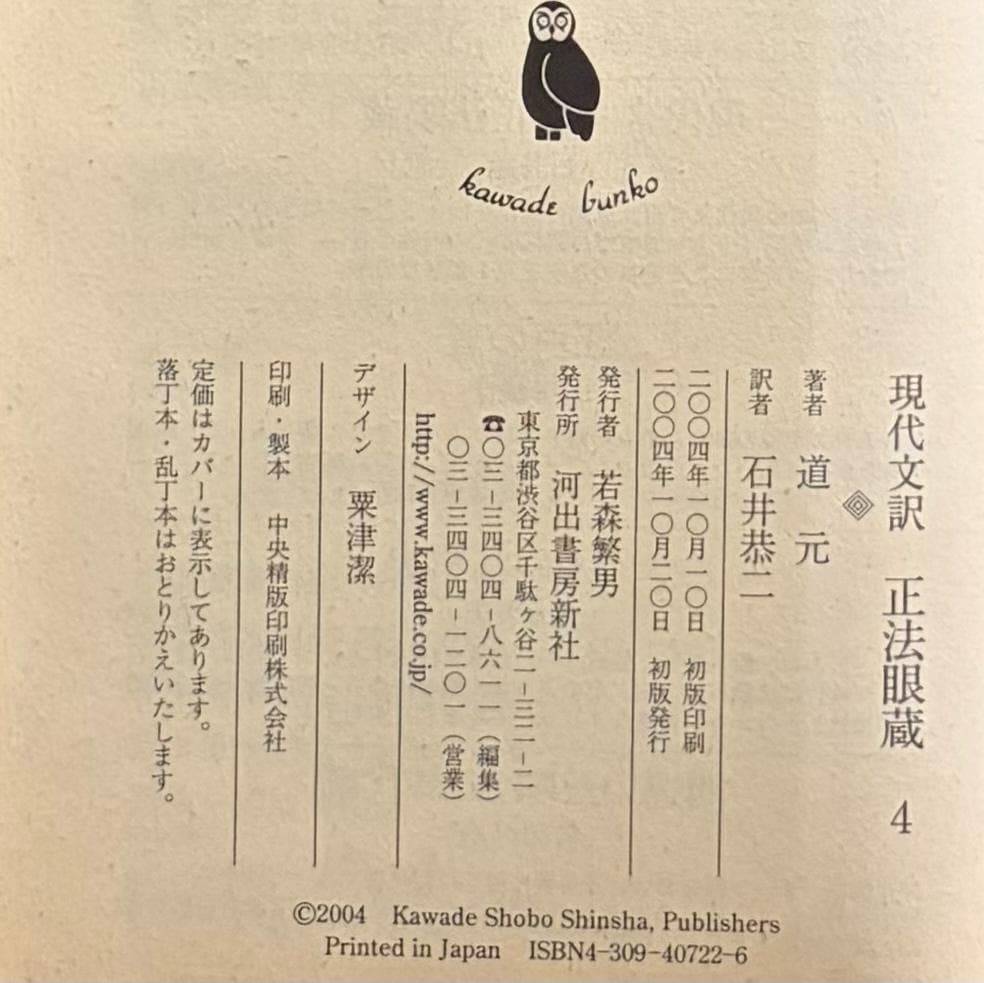 kawade bunko
現代文訳 正法眼蔵 4
著者 道 元
訳者 石井恭二
二〇〇四年一〇月一〇日 初版印刷
二〇〇四年一〇月二〇日 初版発行
発行者 若森繁男
発行所 河出書房新社
東京都渋谷区千駄ヶ谷二-三二-二
☎〇三-三四〇四-八六一一(編集)
〇三-三四〇四-一二〇一(営業)
http://www.kawade.co.jp/
デザイン 粟津潔
印刷・製本 中央精版印刷株式会社
定価はカバーに表示してあります。
落丁本・乱丁本はおとりかえいたします。
©2004 Kawade Shobo Shinsha, Publishers
Printed in Japan ISBN4-309-40722-6